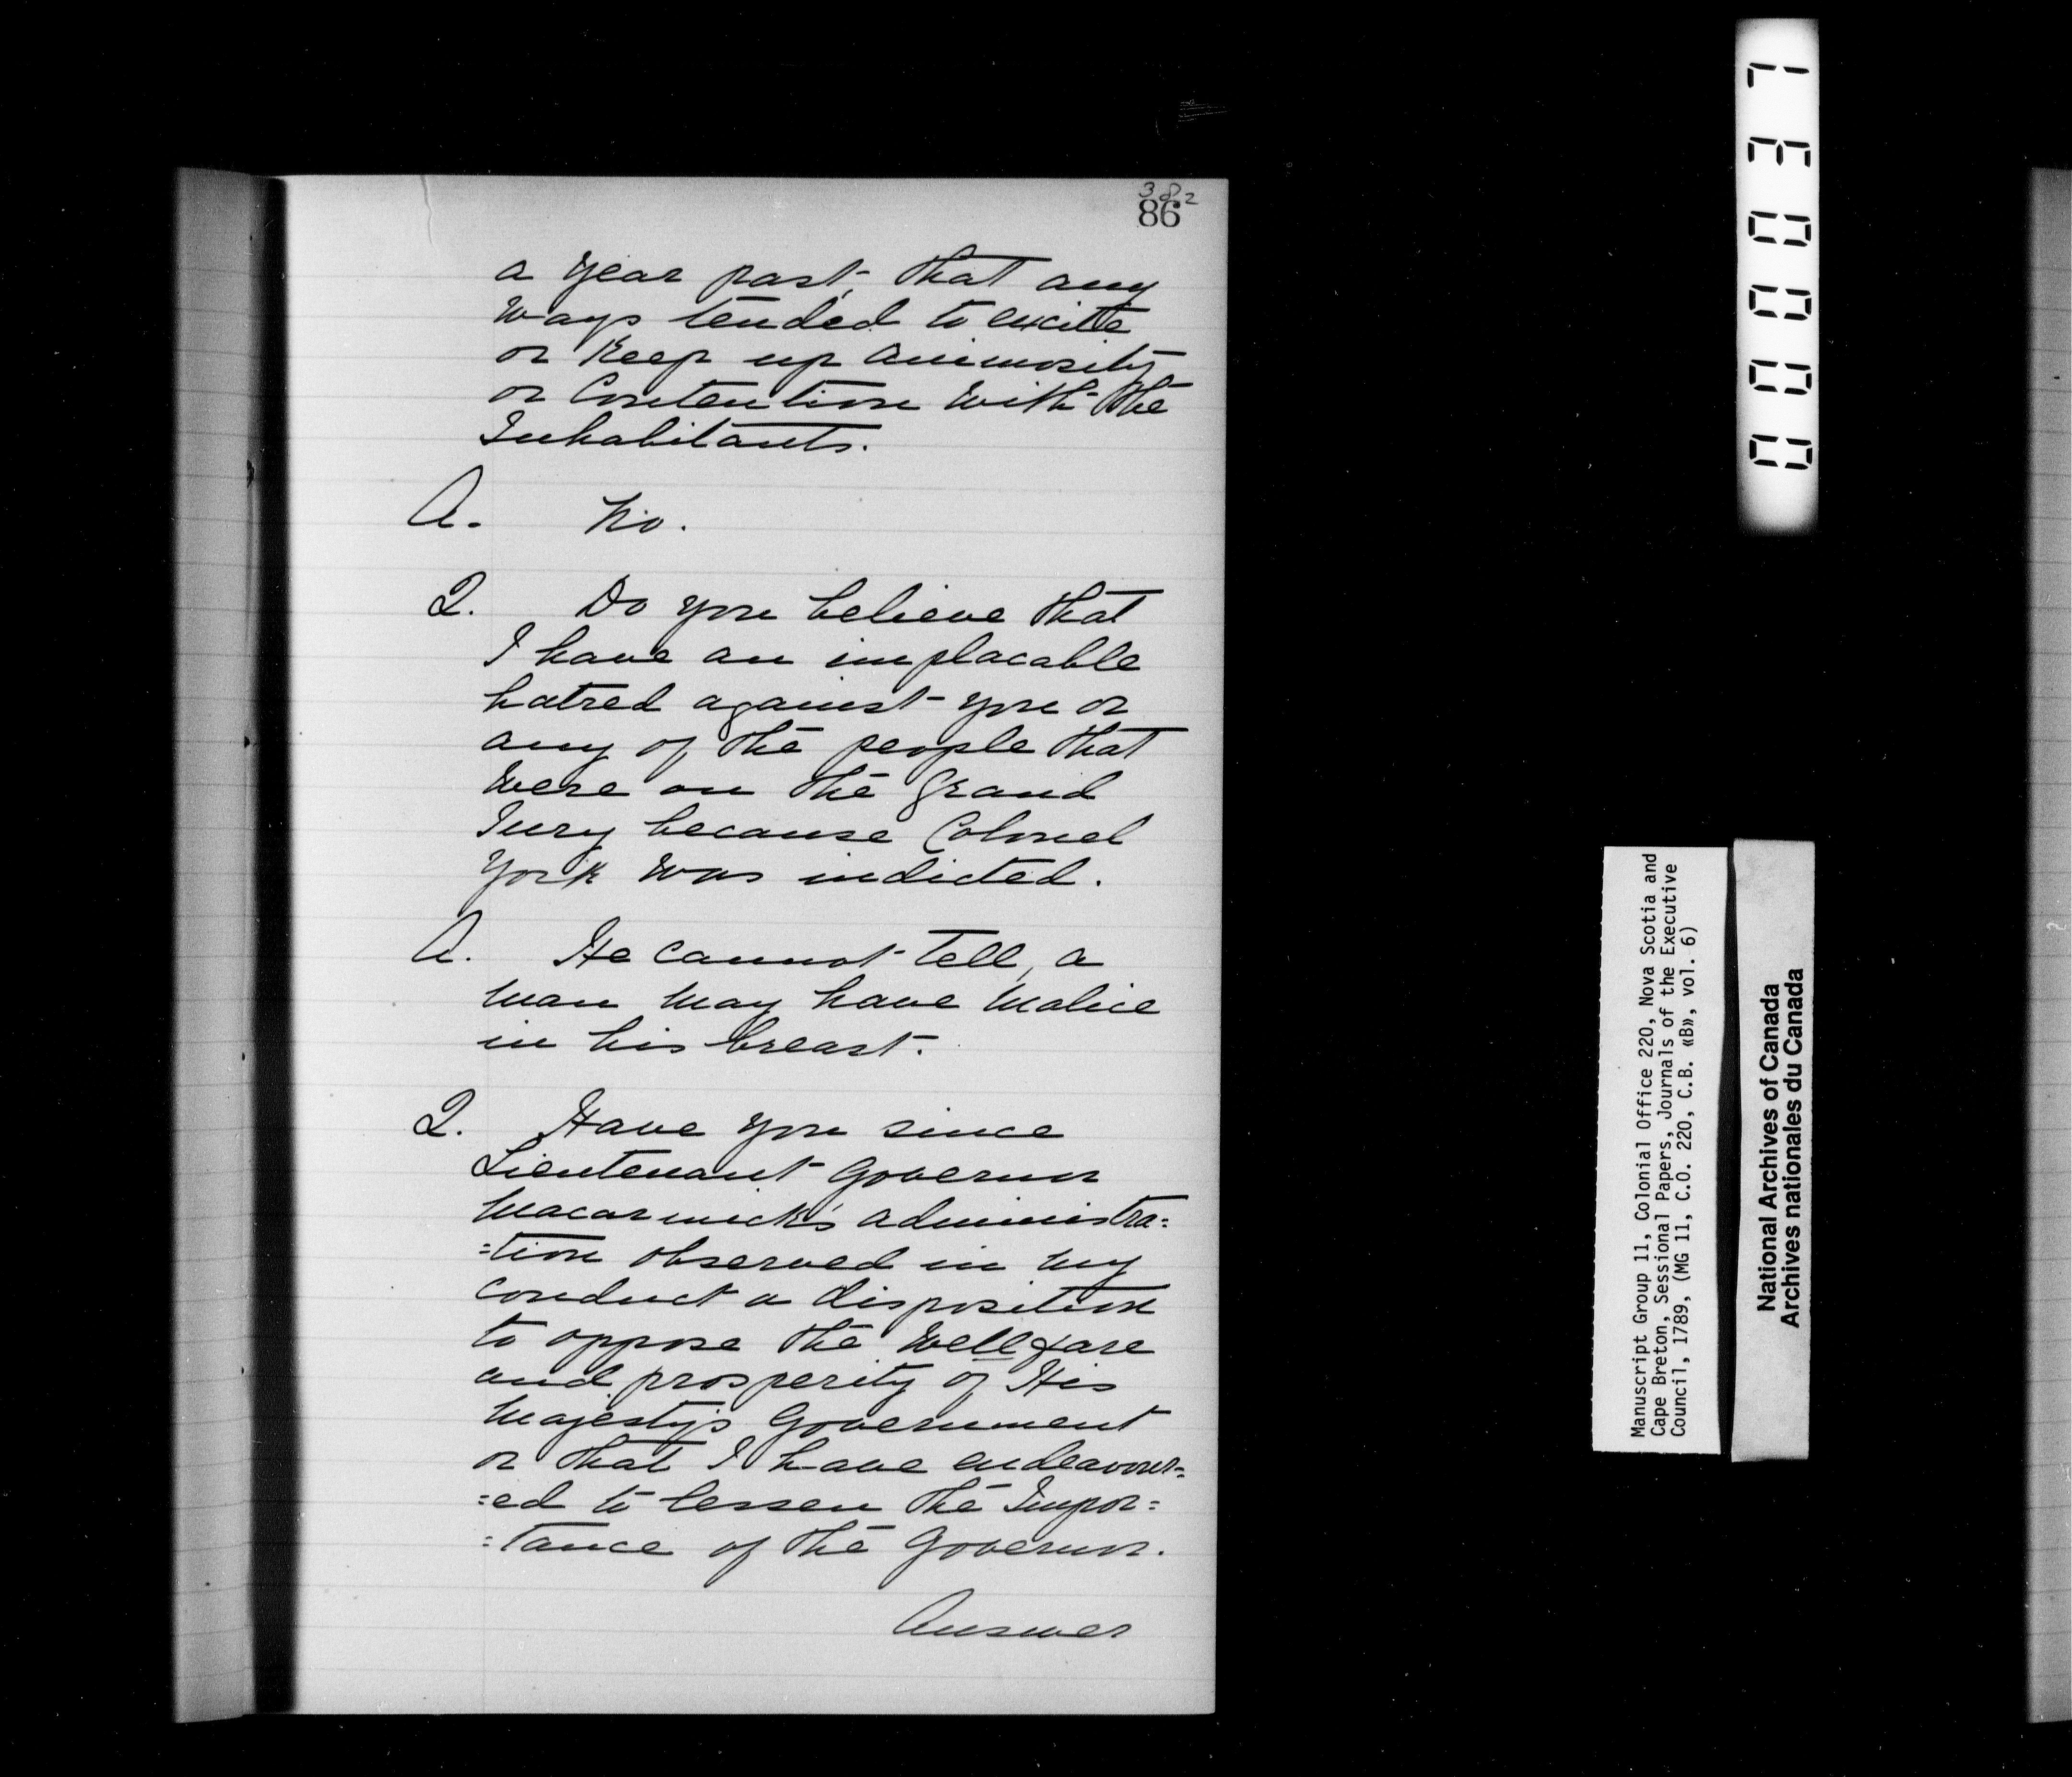 382
86
a year past, that any
ways tended to excite
or keep up animosity
or Contention with the
Inhabitants.
A. No.
Q. Do you believe that
I have an implacable
hatred against you or
any of the people that
were on the Grand
Jury because Colonel
York was indicted.
A. He cannot tell, a
man may have malice
in his breast.
Q. Have you since
Lieutenant Governor
Macarmick's administra=
=tion observed in my
conduct a disposition
to oppose the Wellfare
and prosperity of His
Majesty's Government
or that I have endeavour=
=ed to lessen the Impor=
=tance of the Governor.
Answer
000037
Manuscript Group 11, Colonial Office 220, Nova Scotia and
Cape Breton, Sessional Papers, Journals of the Executive
Council, 1789, (MG 11, C.O. 220, C.B. «B», vol. 6)
National Archives of Canada
Archives nationales du Canada